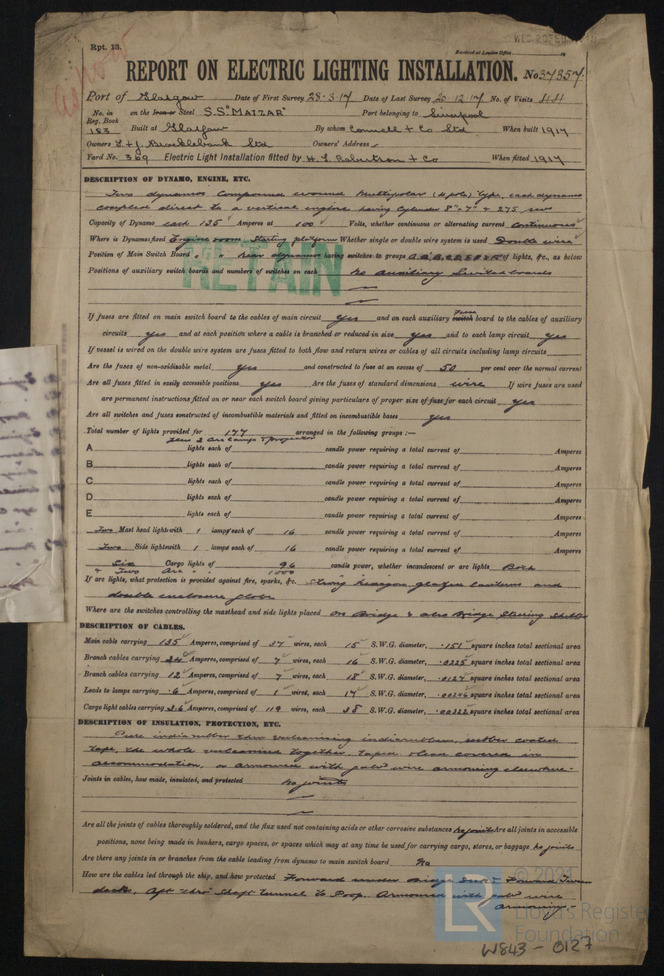 Rpt. 13.
Received at London Office
REPORT ON ELECTRIC LIGHTING INSTALLATION. No 37357
Port of Glasgow Date of First Survey 28-3-17 Date of Last Survey 20-12-17 No. of Visits 44
No. in Reg. Book 183 on the Iron or Steel S.S. "MATZAR" Port belonging to Liverpool
Built at Glasgow By whom Connell & Co Ltd When built 1917
Owners T & J. Brocklebank Ltd Owners' Address
Yard No. 369 Electric Light Installation fitted by H. T. Robertson & Co When fitted 1917
DESCRIPTION OF DYNAMO, ENGINE, ETC.
Two dynamos compound wound multipolar (4 pole) type, each dynamo
coupled direct to a vertical engine having cylinder 8" × 7" × 275 revs
Capacity of Dynamo each 135 Amperes at 100 Volts, whether continuous or alternating current continuous
Where is Dynamo fixed Engine room starting platform Whether single or double wire system is used Double wire
Position of Main Switch Board " " near dynamos having switches to groups A.B.C.D.E.F. of lights, &c., as below
Positions of auxiliary switch boards and numbers of switches on each No auxiliary switchboards
RETAIN
If fuses are fitted on main switch board to the cables of main circuit yes and on each auxiliary switch fuse board to the cables of auxiliary
circuits yes and at each position where a cable is branched or reduced in size yes and to each lamp circuit yes
If vessel is wired on the double wire system are fuses fitted to both flow and return wires or cables of all circuits including lamp circuits
Are the fuses of non-oxidizable metal yes and constructed to fuse at an excess of 50 per cent over the normal current
Are all fuses fitted in easily accessible positions yes Are the fuses of standard dimensions wire If wire fuses are used
are permanent instructions fitted on or near each switch board giving particulars of proper size of fuse for each circuit yes
Are all switch and fuses constructed of incombustible materials and fitted on incombustible bases yes
Total number of lights provided for 177 arranged in the following groups :—
2 arc lamps & projector
A lights each of candle power requiring a total current of Amperes
B lights each of candle power requiring a total current of Amperes
C lights each of candle power requiring a total current of Amperes
D lights each of candle power requiring a total current of Amperes
E lights each of candle power requiring a total current of Amperes
Two Mast head lights with 1 lamps each of 16 candle power requiring a total current of Amperes
Two Side lights with 1 lamps each of 16 candle power requiring a total current of Amperes
Six Cargo lights of 96 candle power, whether incandescent or arc lights Both
& Two Arc " " 1000
If arc lights, what protection is provided against fire, sparks, &c. strong hexagon glazed lanterns and
double enclosure globe
Where are the switches controlling the masthead and side lights placed on Bridge & also Bridge Steering Shelter
DESCRIPTION OF CABLES.
Main cable carrying 135 Amperes, comprised of 37 wires, each 15 S.W.G. diameter, .151 square inches total sectional area
Branch cables carrying 24 Amperes, comprised of 7 wires, each 16 S.W.G. diameter, .0225 square inches total sectional area
Branch cables carrying 12 Amperes, comprised of 7 wires, each 18 S.W.G. diameter, .0127 square inches total sectional area
Leads to lamps carrying .6 Amperes, comprised of 1 wires, each 17 S.W.G. diameter, .00246 square inches total sectional area
Cargo light cables carrying 3.6 Amperes, comprised of 119 wires, each 38 S.W.G. diameter, .00322 square inches total sectional area
DESCRIPTION OF INSULATION, PROTECTION, ETC.
Pure indiarubber then vulcanising indiarubber, rubber coated
tape, the whole vulcanised together. taped & lead covered in
accommodation, or armoured with galvd wire armouring elsewhere.
Joints in cables, how made, insulated, and protected no joints
Are all the joints of cables thoroughly soldered, and the flux used not containing acids or other corrosive substances no joints Are all joints in accessible
positions, none being made in bunkers, cargo spaces, or spaces which may at any time be used for carrying cargo, stores, or baggage no joints
Are there any joints in or branches from the cable leading from dynamo to main switch board No
How are the cables led through the ship, and how protected Forward under Bridge Forward Tween
decks, Aft thro' Shaft tunnel to Poop. Armoured with galvd wire
armouring.
© 2021
LR Lloyd's Register
Foundation
W843-0127